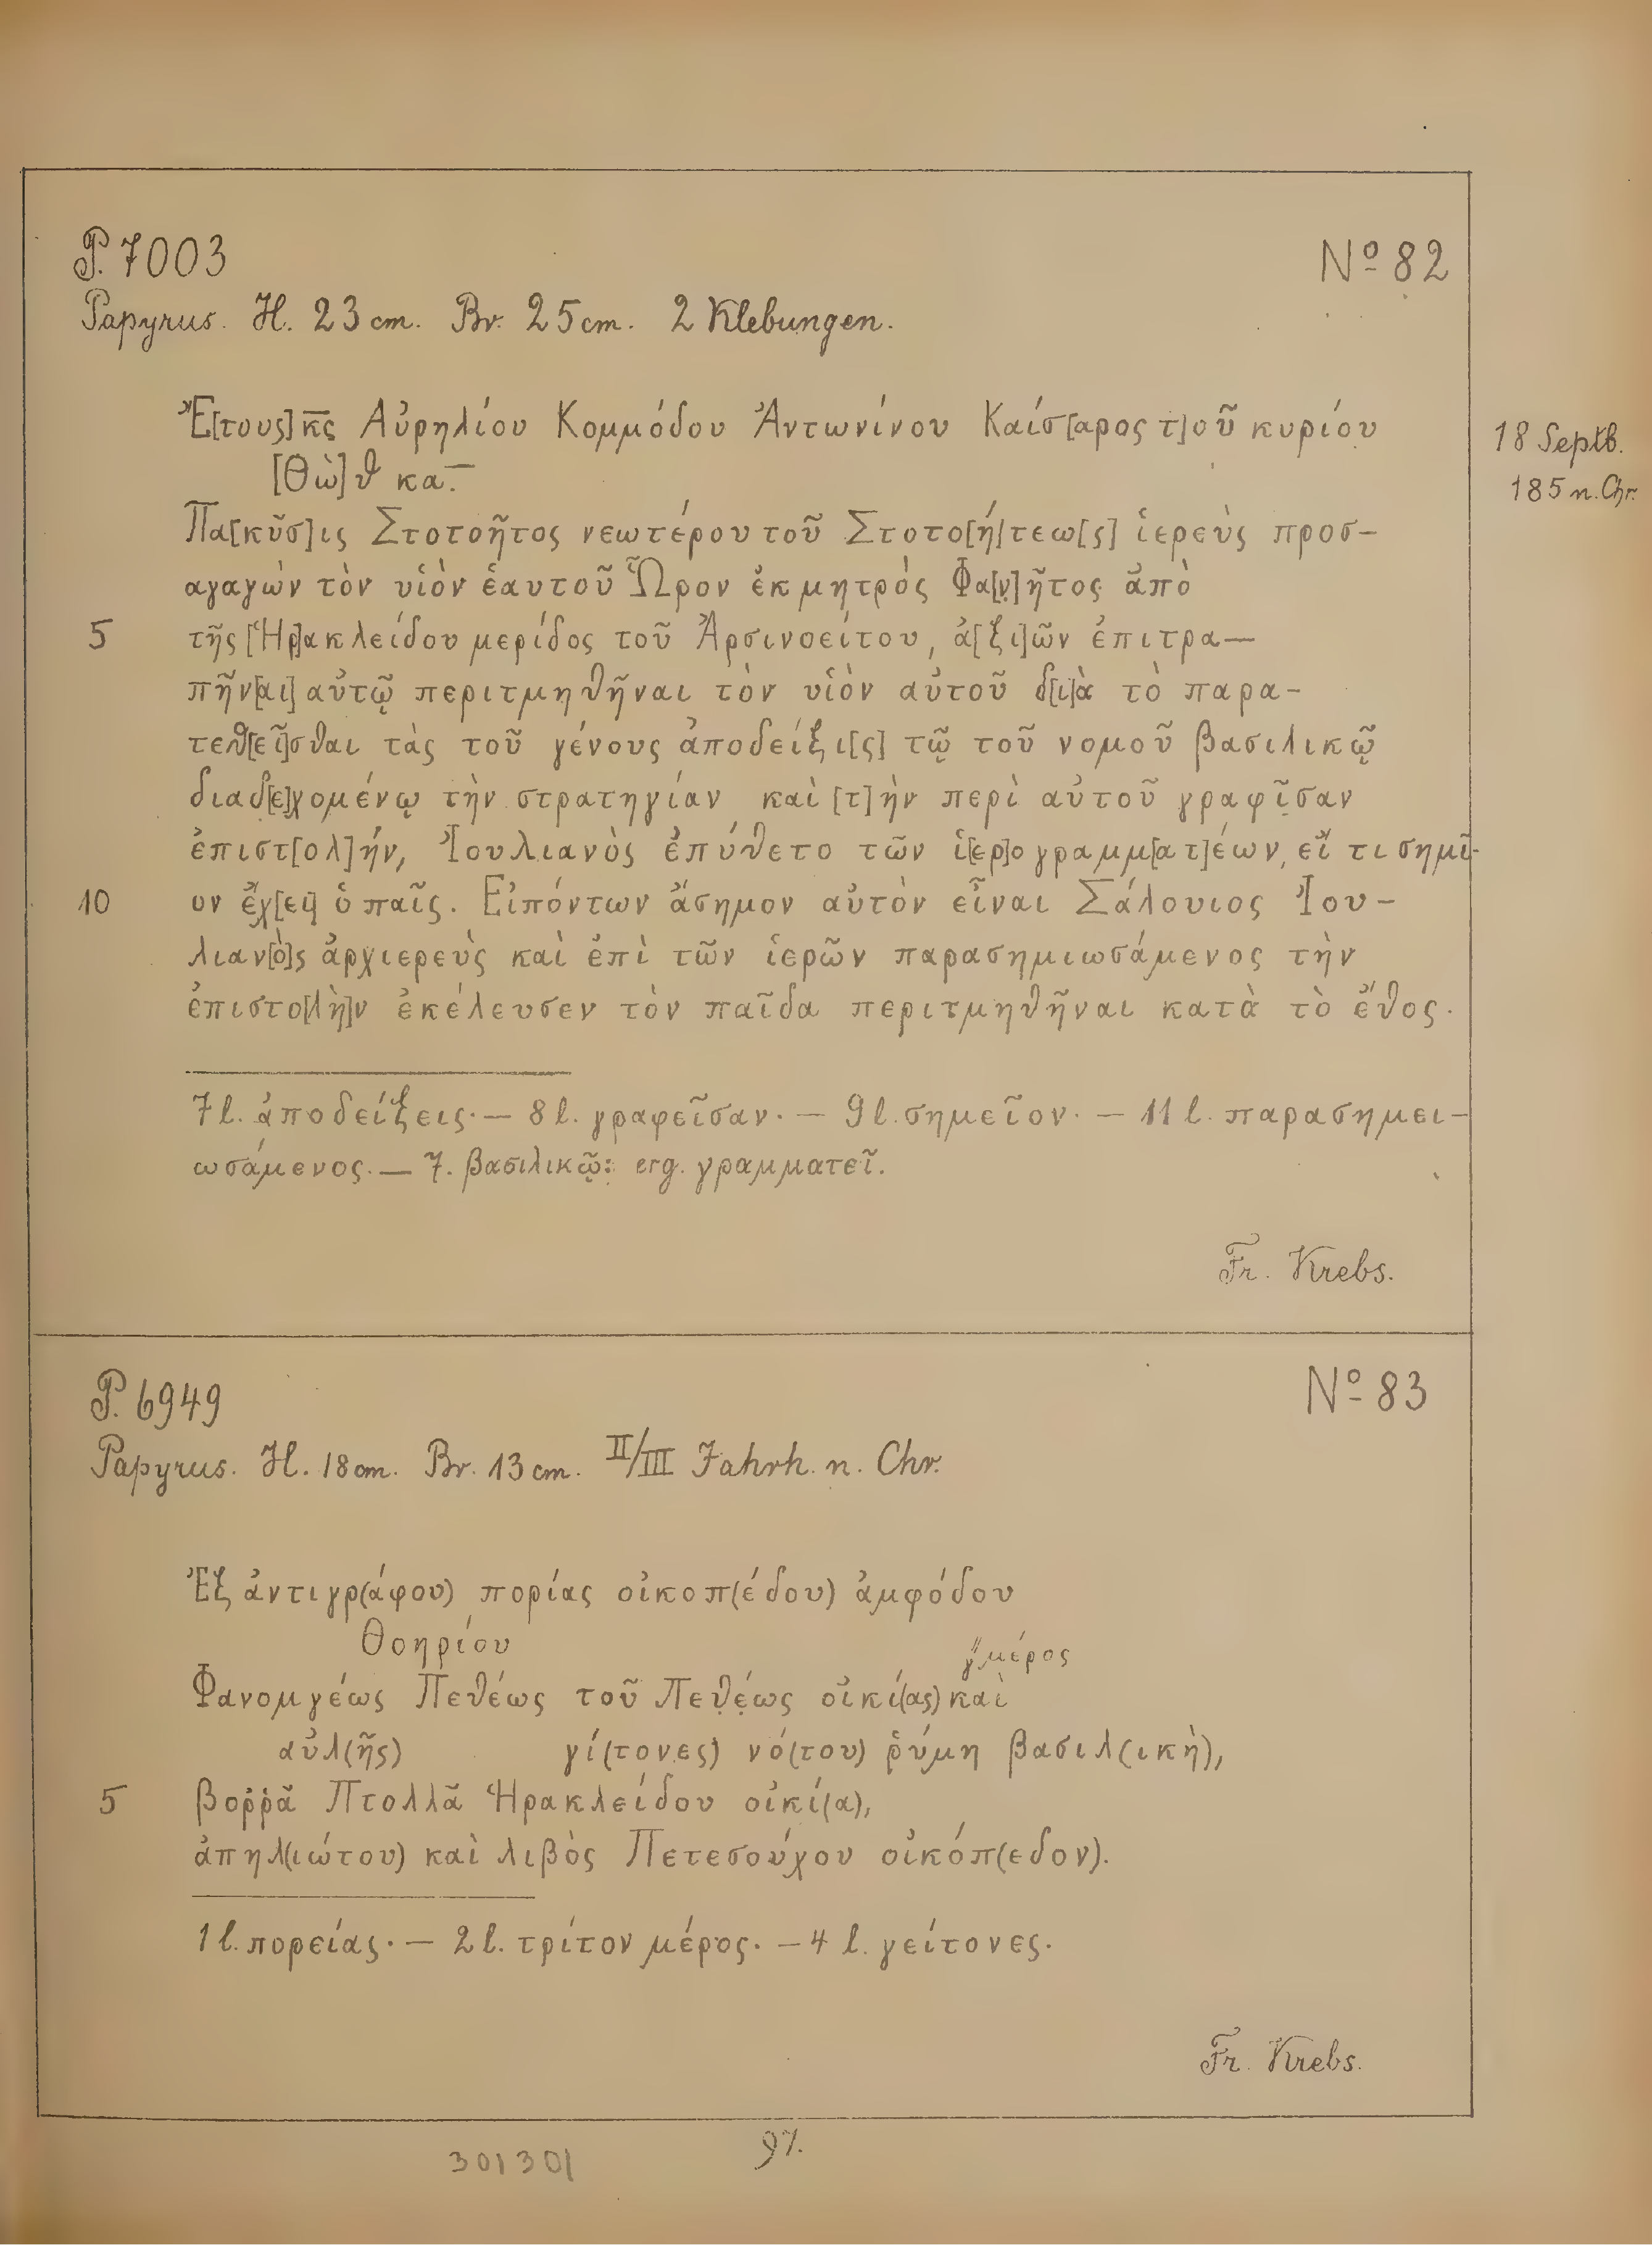 P. 7003
Nº 82
Papyrus. H. 23 cm. Br. 25 cm. 2 Klebungen.
Ἔ[τους] κ̅ς̅ Αὐρηλίου Κομμόδου Ἀντωνίνου Καίσ[αρος τ]οῦ κυρίου
18 Septb.
[Θὼ]θ κα.̅
185 n. Chr.
Πα[κῦσ]ις Στοτοῆτος νεωτέρου τοῦ Στοτο[ή]τεω[ς] ἱερεὺς προσ-
αγαγὼν τὸν υἱὸν ἑαυτοῦ Ὧρον ἐκ μητρὸς Φα[ν̣]ῆτος ἀπὸ
5 τῆς [Ἡρ]ακλείδου μερίδος τοῦ Ἀρσινοείτου, ἀ[ξι]ῶν ἐπιτρα—
πῆν[αι] αὐτῷ περιτμηθῆναι τὸν υἱὸν αὐτοῦ δ[ι]ὰ τὸ παρα-
τεθ[εῖ]σθαι τὰς τοῦ γένους ἀποδείξι[ς] τῷ τοῦ νομοῦ βασιλικῷ
διαδ[ε]χομένῳ τὴν στρατηγίαν καὶ [τ]ὴν περὶ αὐτοῦ γραφῖσαν
ἐπιστ[ολ]ήν, Ἰουλιανὸς ἐπύθετο τῶν ἱ[ερ]ογραμμ[ατ]έων, εἴ τι σημῖ-
10 ον ἔχ[ει] ὁ παῖς. Εἰπόντων ἄσημον αὐτὸν εἶναι Σάλουιος Ἰου-
λιαν[ὸ]ς ἀρχιερεὺς καὶ ἐπὶ τῶν ἱερῶν παρασημιωσάμενος τὴν
ἐπιστο[λὴ]ν ἐκέλευσεν τὸν παῖδα περιτμηθῆναι κατὰ τὸ ἔθος.
7 l. ἀποδείξεις. — 8 l. γραφεῖσαν. — 9 l. σημεῖον. — 11 l. παρασημει-
ωσάμενος. — 7. βασιλικῷ: erg. γραμματεῖ.
Fr. Krebs.
P. 6949
Nº 83
Papyrus. H. 18 cm. Br. 13 cm. II/III Jahrh. n. Chr.
Ἐξ ἀντιγρ(άφου) πορίας οἰκοπ(έδου) ἀμφόδου
Θοηρίου
γ´´ μέρος
Φανομγέως Πεθέως τοῦ Πεθ̣έ̣ως οἰκί(ας) καὶ
αὐλ(ῆς) γί(τονες) νό(του) ῥύμη βασιλ(ικὴ),
5 βοῤῥᾶ Πτολλᾶ Ἡρακλείδου οἰκί(α),
ἀπηλ(ιώτου) καὶ λιβὸς Πετεσούχου οἰκόπ(εδον).
1 l. πορείας. — 2 l. τρίτον μέρος. — 4 l. γείτονες.
Fr. Krebs.
97.
301301